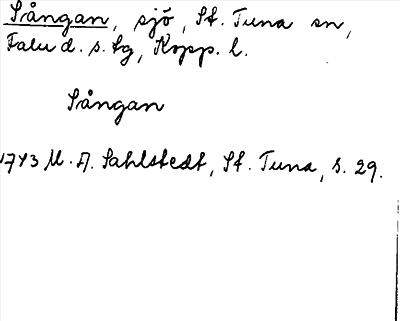 Sången, sjö, St. Tuna sn,
Falu d. s. tg, Kopp. l.
Sången
1743 M. A. Sahlstedt, St. Tuna, s. 29.